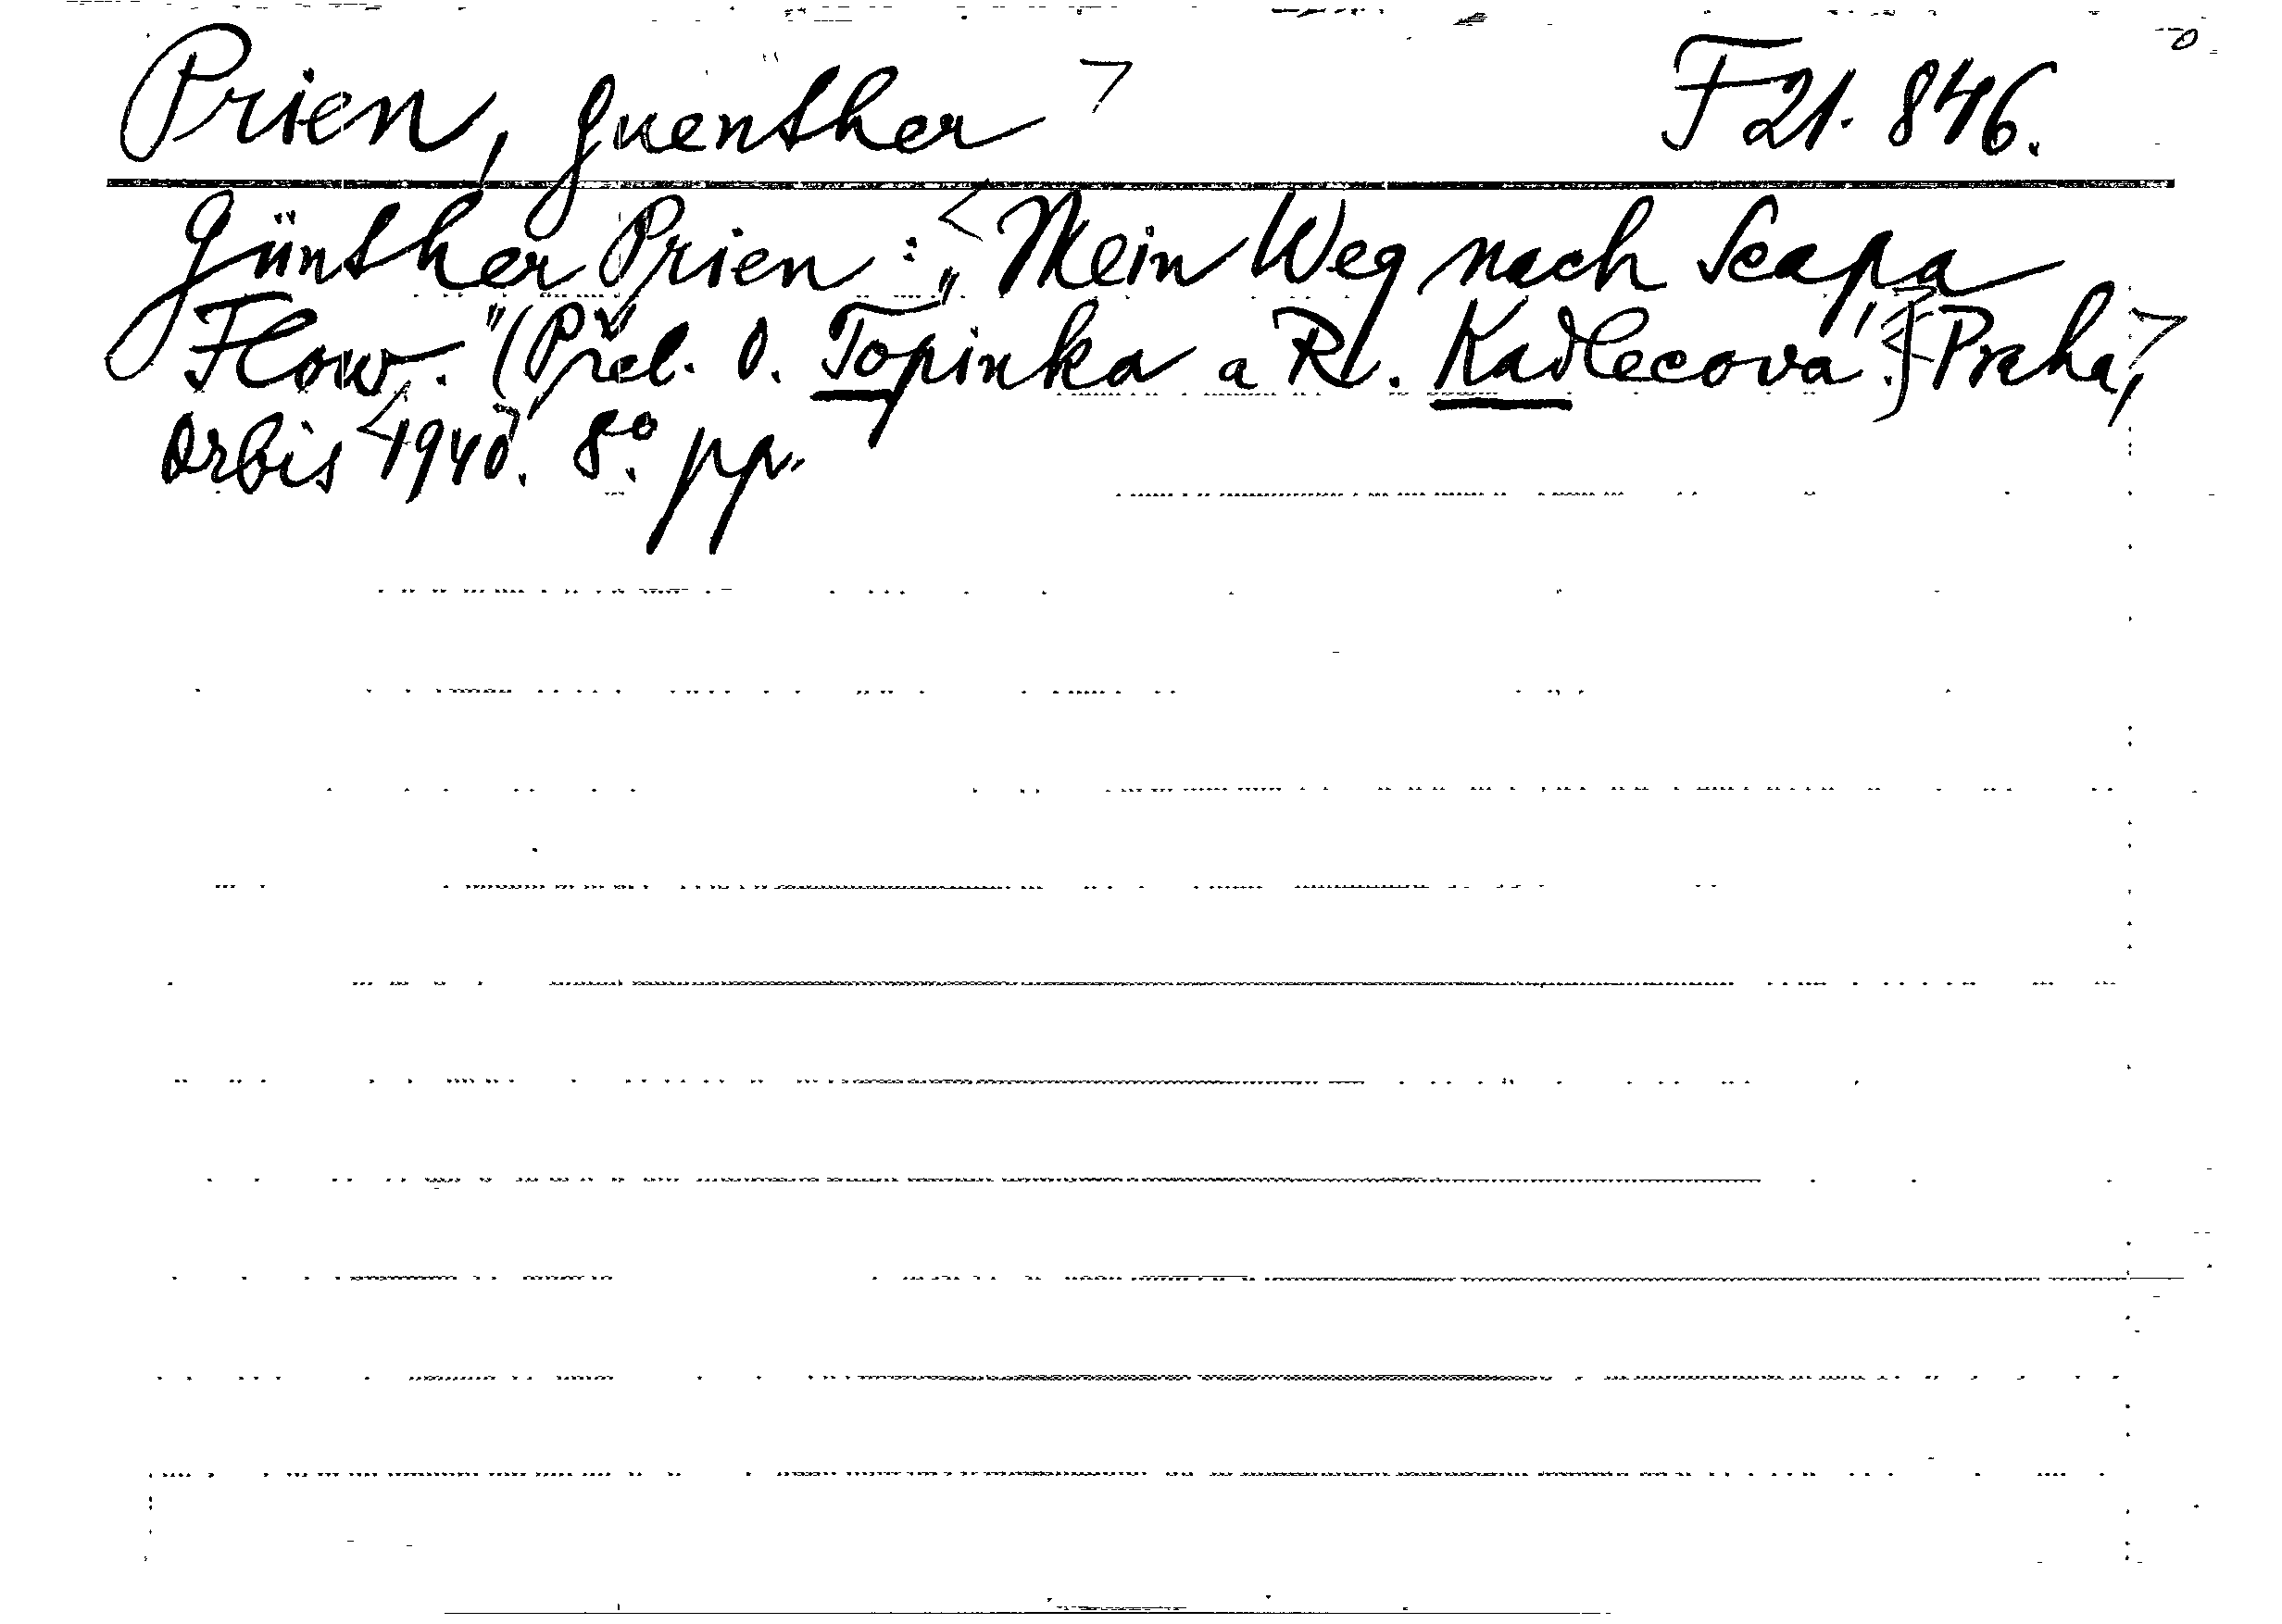 Prien, Guenther F 21.846.
Günther Prien: „Mein Weg nach Scapa
Flow." (Přel. O. Topinka a R. Kadlecová.) Praha,
Orbis 1940. 8°. pp.